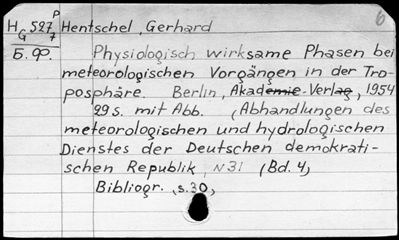 P 6
H 527 Hentschel, Gerhard
G 7
Б. Ф. Physiologisch wirksame Phasen bei
meteorologischen Vorgängen in der Tro-
posphäre. Berlin, Akademie-Verlag, 1954
29 s. mit Abb. (Abhandlungen des
meteorologischen und hydrologischen
Dienstes der Deutschen demokrati-
schen Republik, N 31 (Bd. 4)
Bibliogr., s. 30,